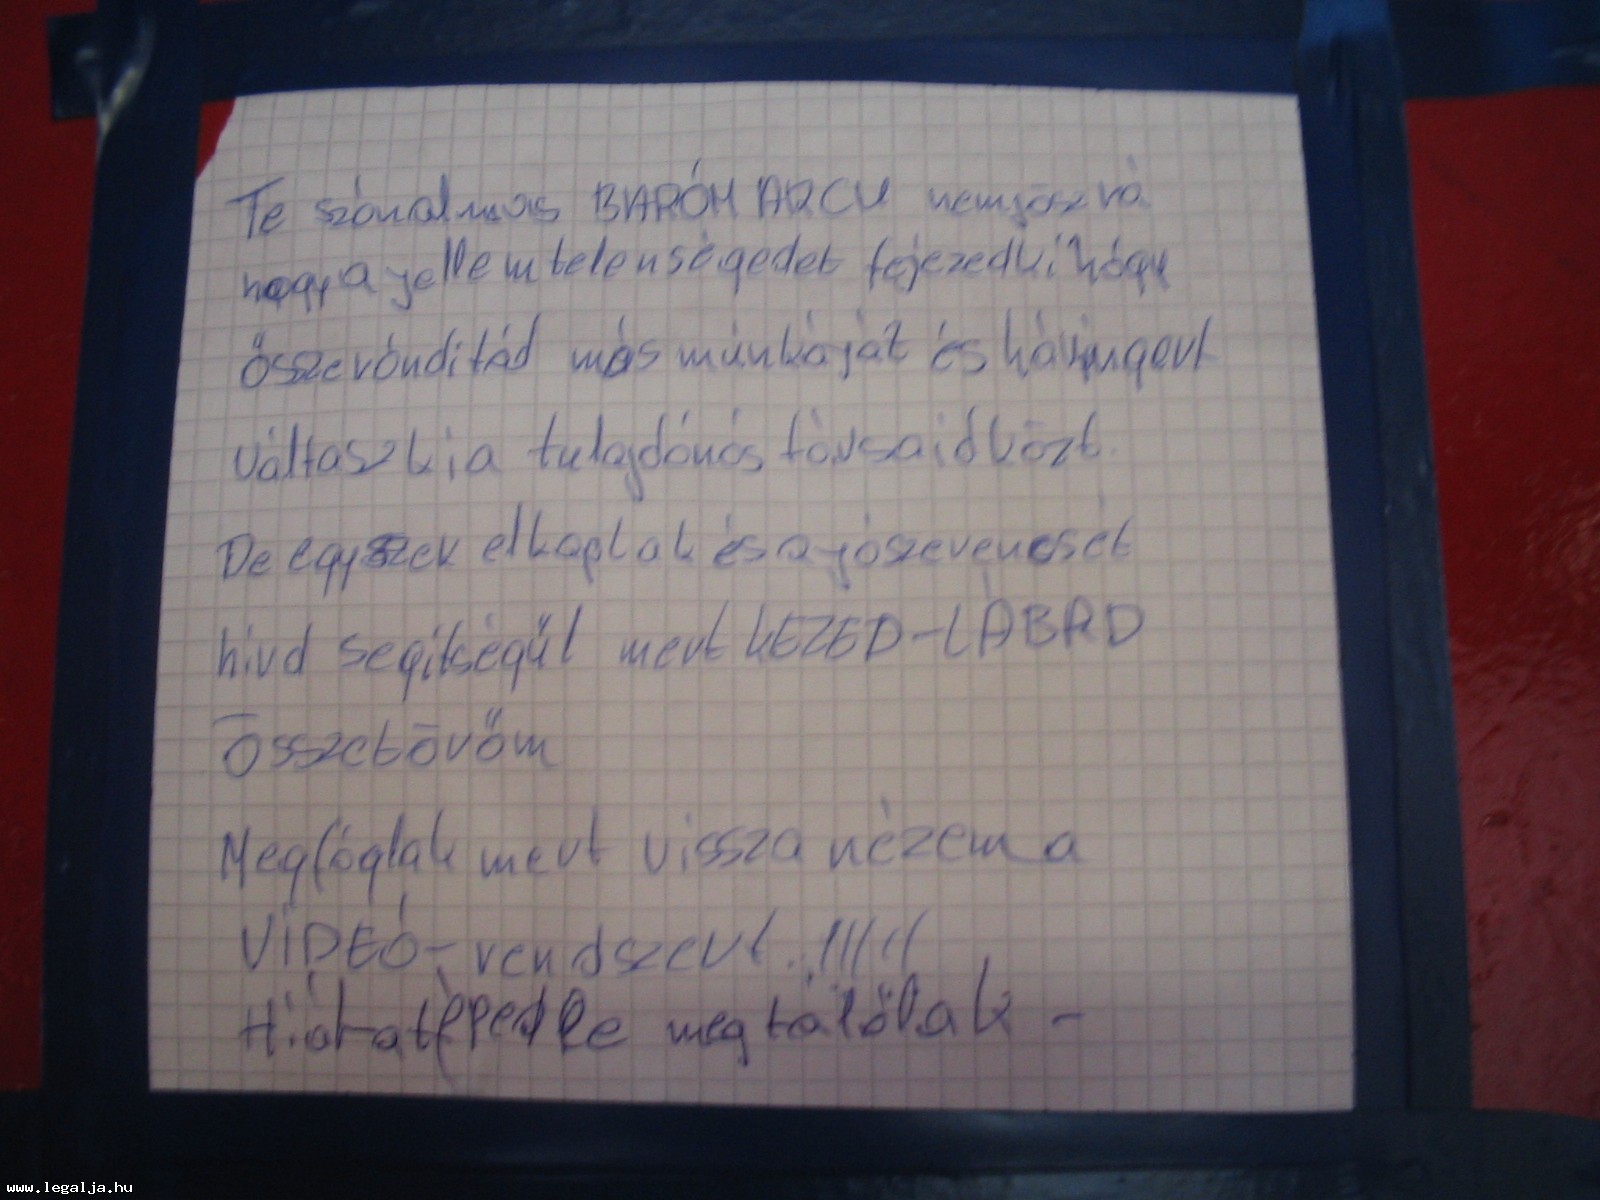 Te szónalmas BARÓM ARCU nemjösz rá
hogy a jellemtelenségedet fejezed ki hógy
összeróndítád más múnkáját és háringert
váltasz ki a tulajdónós társaid közt.
De egyszer elkaplak és a jószerencsét
hivd segítségűl mert KEZED-LÁBAD
összetöröm
Megfóglak mert vissza nézem a
VIDEÓ-rendszert..!!!!!
Hiába téped le megtálállak -
www.legalja.hu